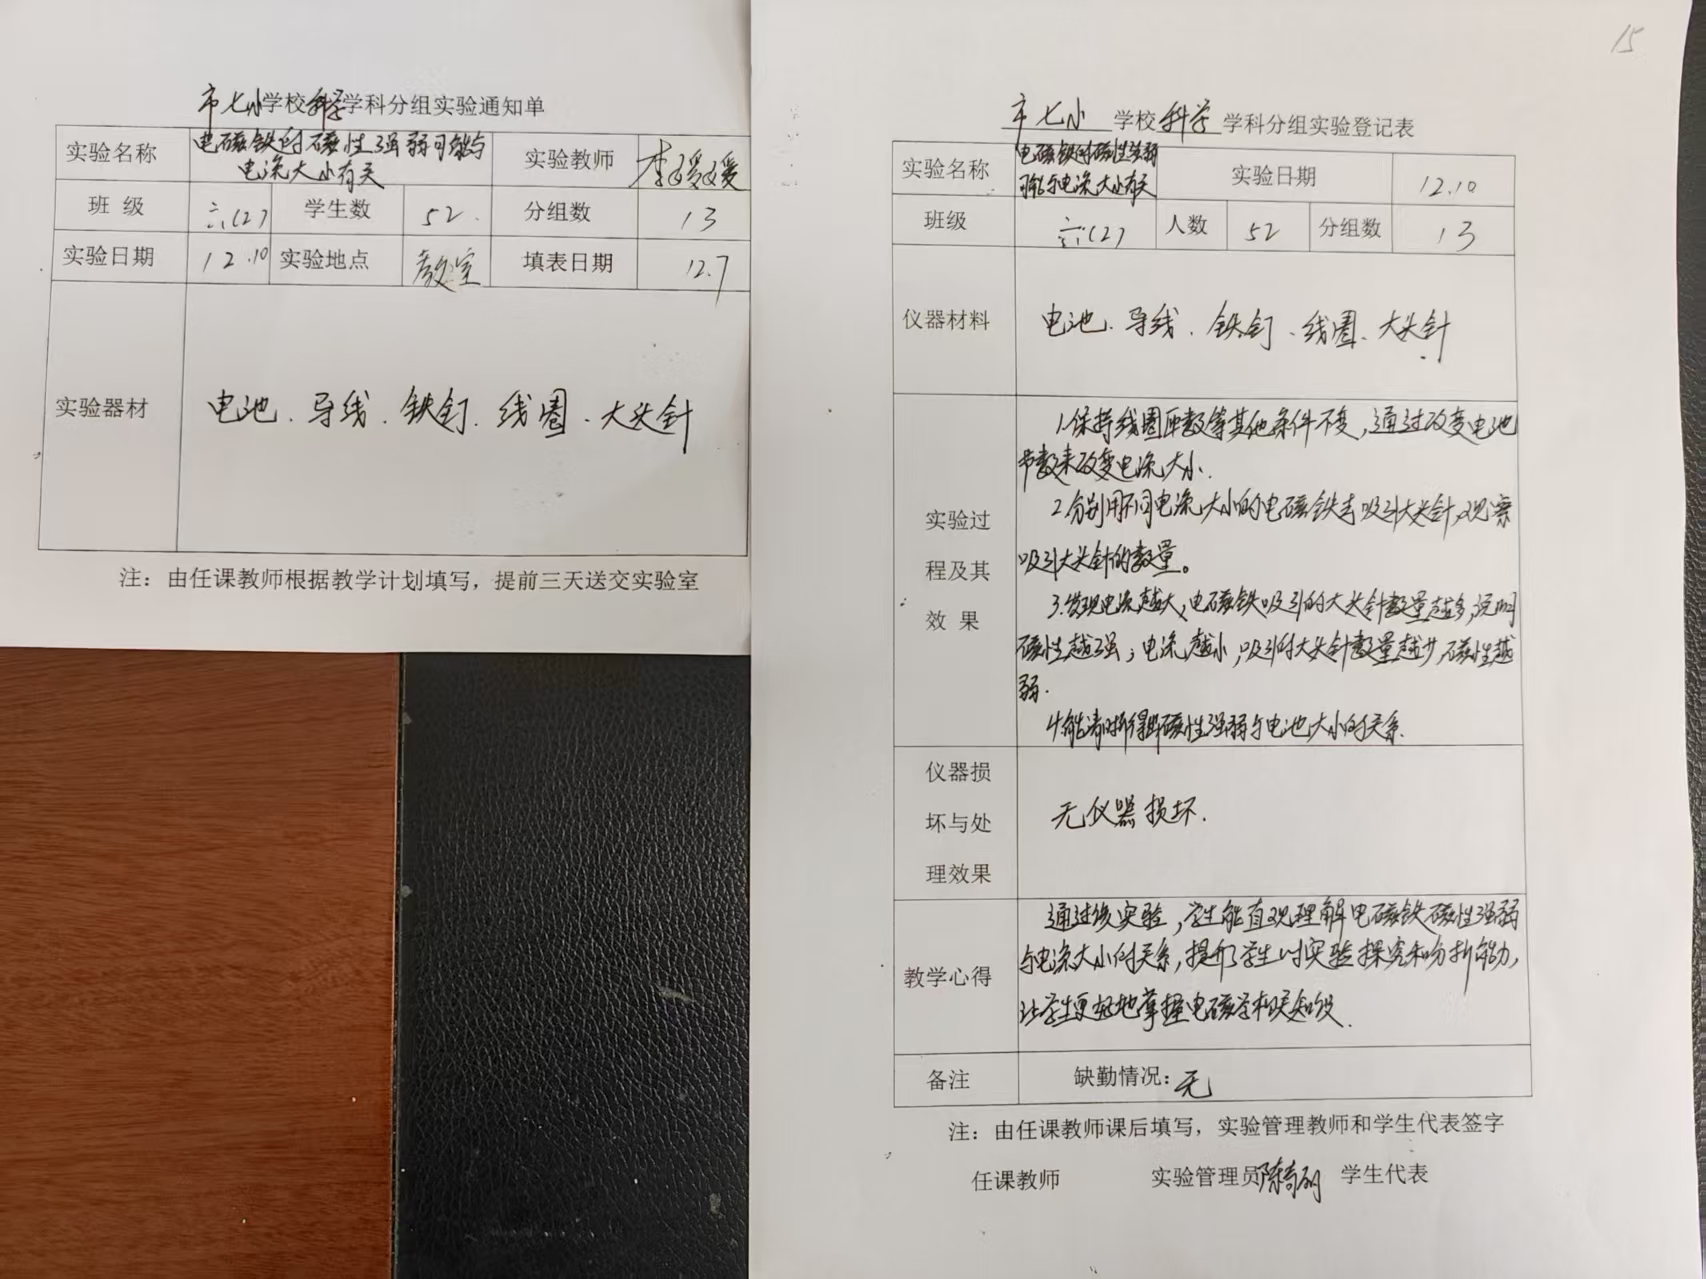 市七小学校科学学科分组实验通知单
实验名称 电磁铁的磁性强弱可能与电流大小有关 实验教师 李媛媛
班 级 六(2) 学生数 52 分组数 13
实验日期 12.10 实验地点 教室 填表日期 12.7
实验器材 电池、导线、铁钉、线圈、大头针
注：由任课教师根据教学计划填写，提前三天送交实验室
15
市七小 学校 科学 学科分组实验登记表
实验名称 电磁铁的磁性强弱可能与电流大小有关 实验日期 12.10
班级 六(2) 人数 52 分组数 13
仪器材料 电池、导线、铁钉、线圈、大头针
实验过程及其效果
1.保持线圈匝数等其他条件不变，通过改变电池
节数来改变电流大小.
2.分别用不同电流大小的电磁铁去吸引大头针,观察
吸引大头针的数量。
3.发现电流越大,电磁铁吸引的大头针数量越多,说明
磁性越强；电流越小,吸引的大头针数量越少,磁性越
弱.
4.能清晰得出磁性强弱与电池大小的关系.
仪器损坏与处理效果 无仪器损坏.
教学心得
通过该实验，学生能直观理解电磁铁磁性强弱
与电流大小的关系,提升了学生的实验探究和分析能力,
让学生更好地掌握电磁学相关知识.
备注 缺勤情况：无
注：由任课教师课后填写，实验管理教师和学生代表签字
任课教师 实验管理员 陈 学生代表